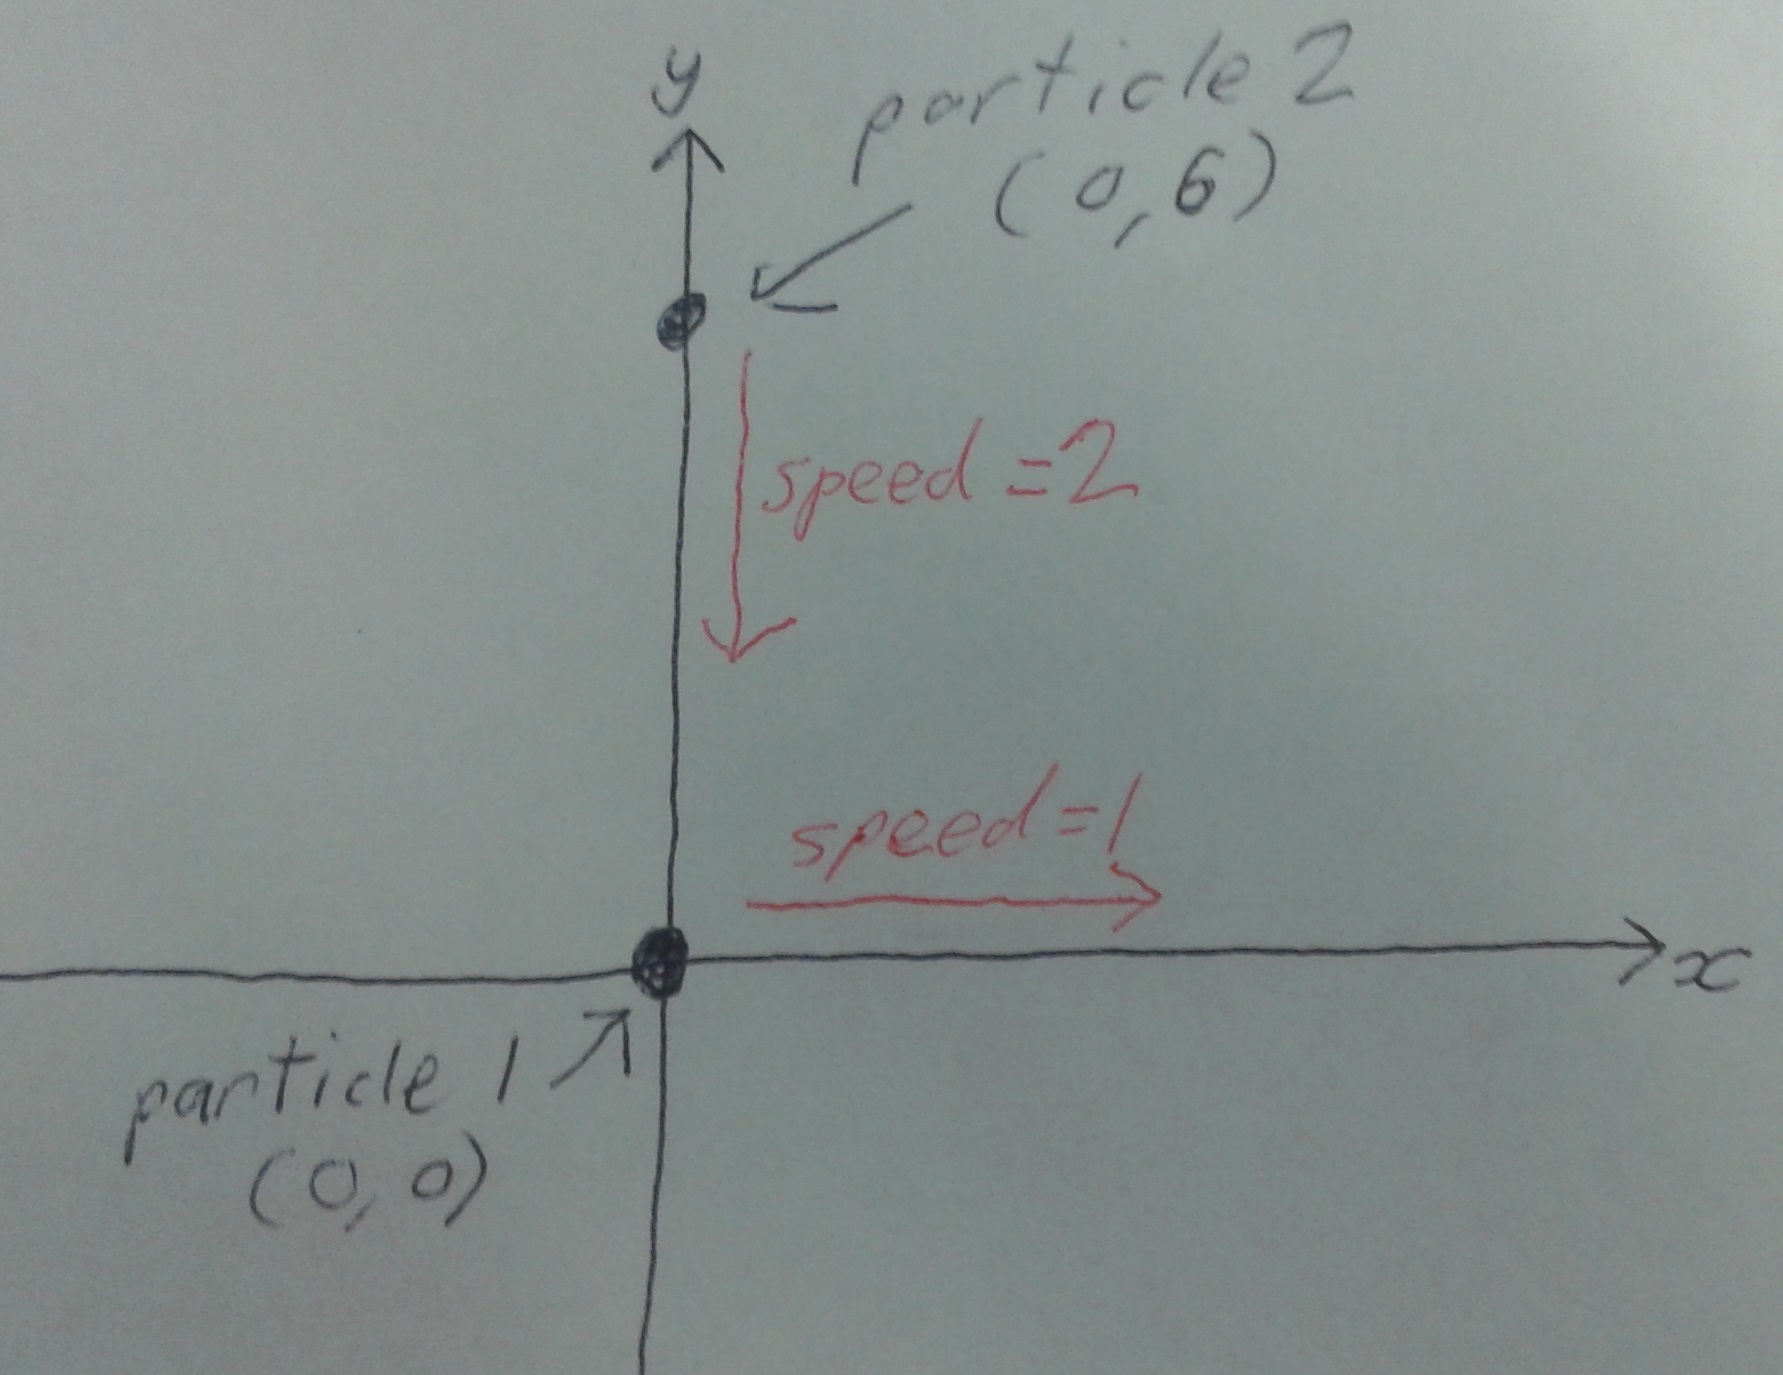 y
particle 2
(0,6)
speed =2
speed=1
x
particle 1
(0,0)